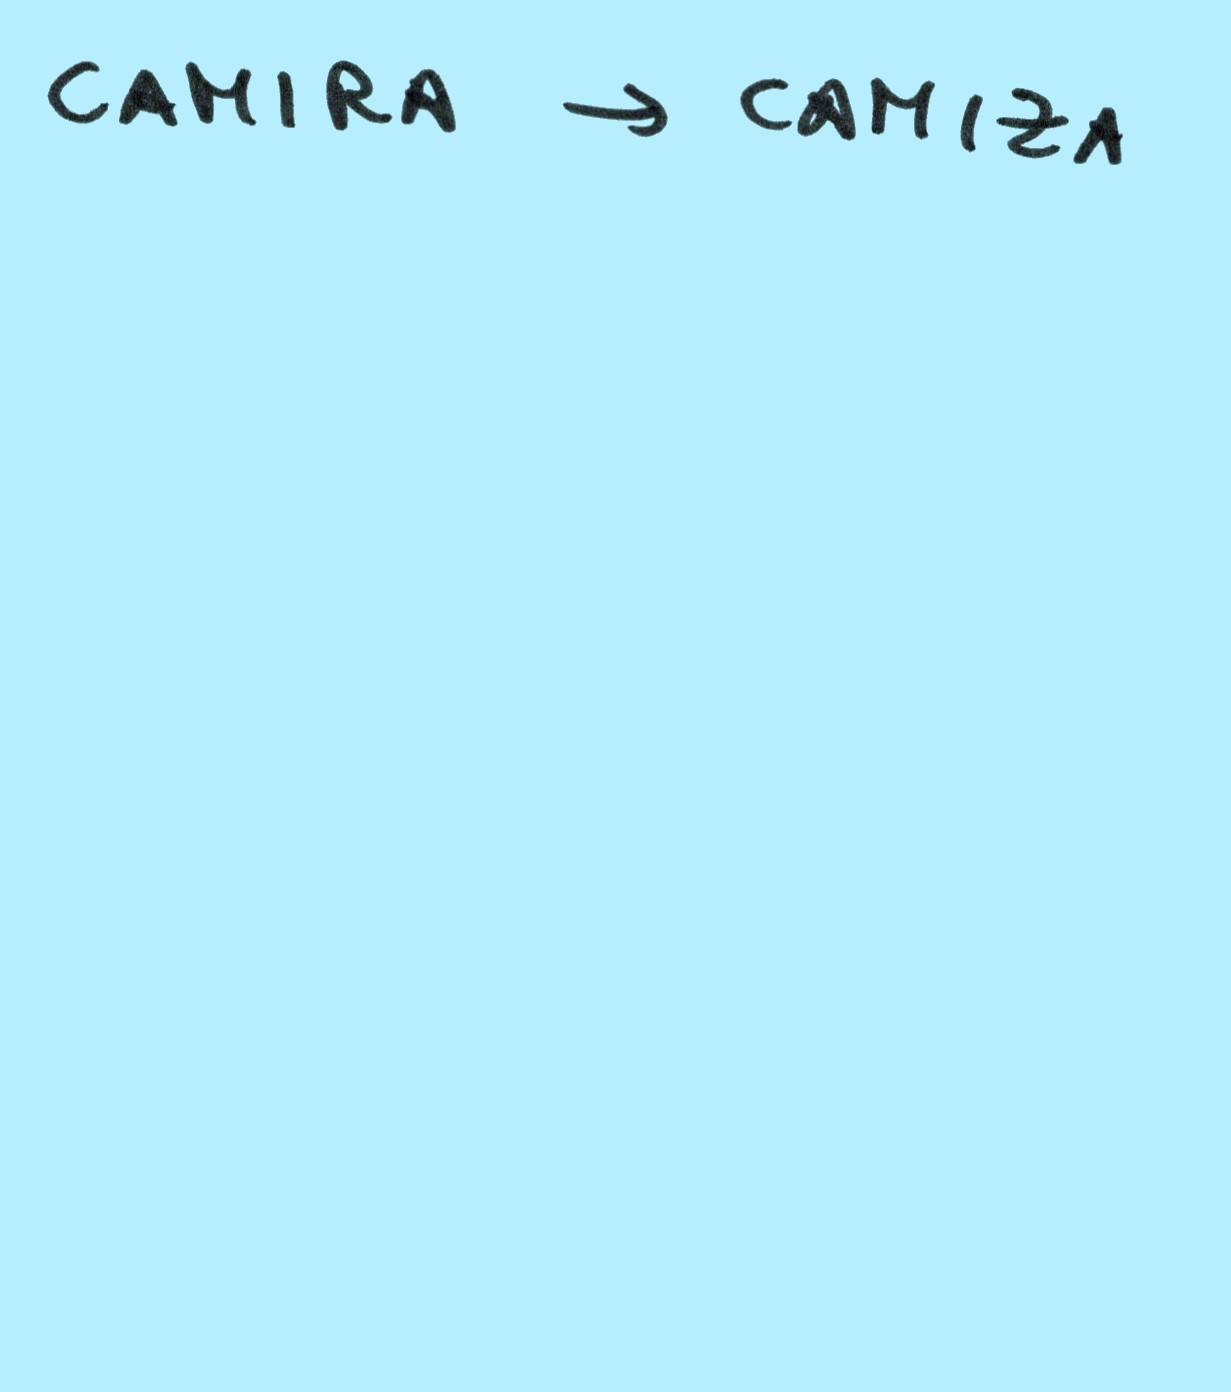 CAMIRA → CAMIZA